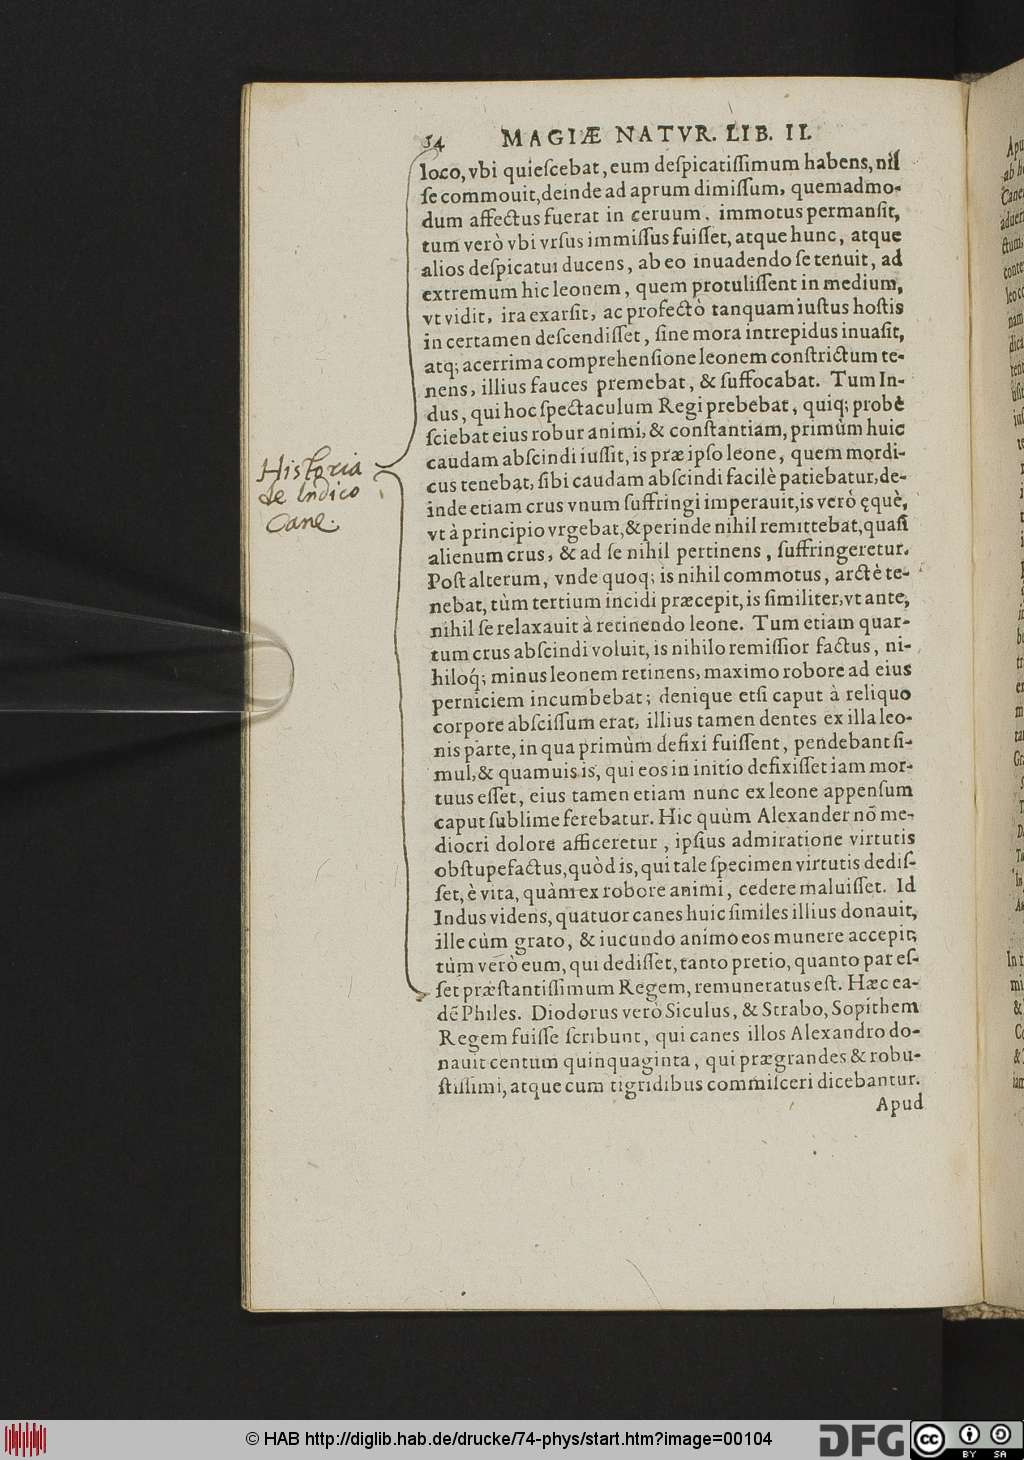 54 MAGIÆ NATVR. LIB. II.
loco, vbi quieſcebat, eum deſpicatiſſimum habens, nil
ſe commouit, deinde ad aprum dimiſſum, quemadmo-
dum affectus fuerat in ceruum, immotus permanſit,
tum verò vbi vrſus immiſſus fuiſſet, atque hunc, atque
alios deſpicatui ducens, ab eo inuadendo ſe tenuit, ad
extremum hic leonem, quem protuliſſent in medium,
vt vidit, ira exarſit, ac profectò tanquam iuſtus hoſtis
in certamen deſcendiſſet, ſine mora intrepidus inuaſit,
atq; acerrima comprehenſione leonem conſtrictum te-
nens, illius fauces premebat, & ſuffocabat. Tum In-
dus, qui hoc ſpectaculum Regi prebebat, quiq; probè
ſciebat eius robur animi, & conſtantiam, primùm huic
caudam abſcindi iuſſit, is præ ipſo leone, quem mordi-
cus tenebat, ſibi caudam abſcindi facilè patiebatur, de-
inde etiam crus vnum ſuffringi imperauit, is verò ęquè,
vt à principio vrgebat, & perinde nihil remittebat, quaſi
alienum crus, & ad ſe nihil pertinens, ſuffringeretur.
Poſt alterum, vnde quoq; is nihil commotus, arctè te-
nebat, tùm tertium incidi præcepit, is ſimiliter, vt ante,
nihil ſe relaxauit à retinendo leone. Tum etiam quar-
tum crus abſcindi voluit, is nihilo remiſſior factus, ni-
hiloq́; minus leonem retinens, maximo robore ad eius
perniciem incumbebat; denique etſi caput à reliquo
corpore abſciſſum erat, illius tamen dentes ex illa leo-
nis parte, in qua primùm defixi fuiſſent, pendebant ſi-
mul, & quamuis is, qui eos in initio defixiſſet iam mor-
tuus eſſet, eius tamen etiam nunc ex leone appenſum
caput ſublime ferebatur. Hic quùm Alexander nõ me-
diocri dolore afficeretur, ipſius admiratione virtutis
obſtupefactus, quòd is, qui tale ſpecimen virtutis dediſ-
ſet, è vita, quàm ex robore animi, cedere maluiſſet. Id
Indus videns, quatuor canes huic ſimiles illius donauit,
ille cùm grato, & iucundo animo eos munere accepit,
tùm verò eum, qui dediſſet, tanto pretio, quanto par eſ-
ſet præſtantiſſimum Regem, remuneratus eſt. Hæc ea-
dẽ Philes. Diodorus verò Siculus, & Strabo, Sopithem
Regem fuiſſe ſcribunt, qui canes illos Alexandro do-
nauit centum quinquaginta, qui prægrandes & robu-
ſtiſſimi, atque cum tigridibus commiſceri dicebantur.
Apud
Historia
de Indico
Cane.
© HAB http://diglib.hab.de/drucke/74-phys/start.htm?image=00104
DFG
cc BY SA